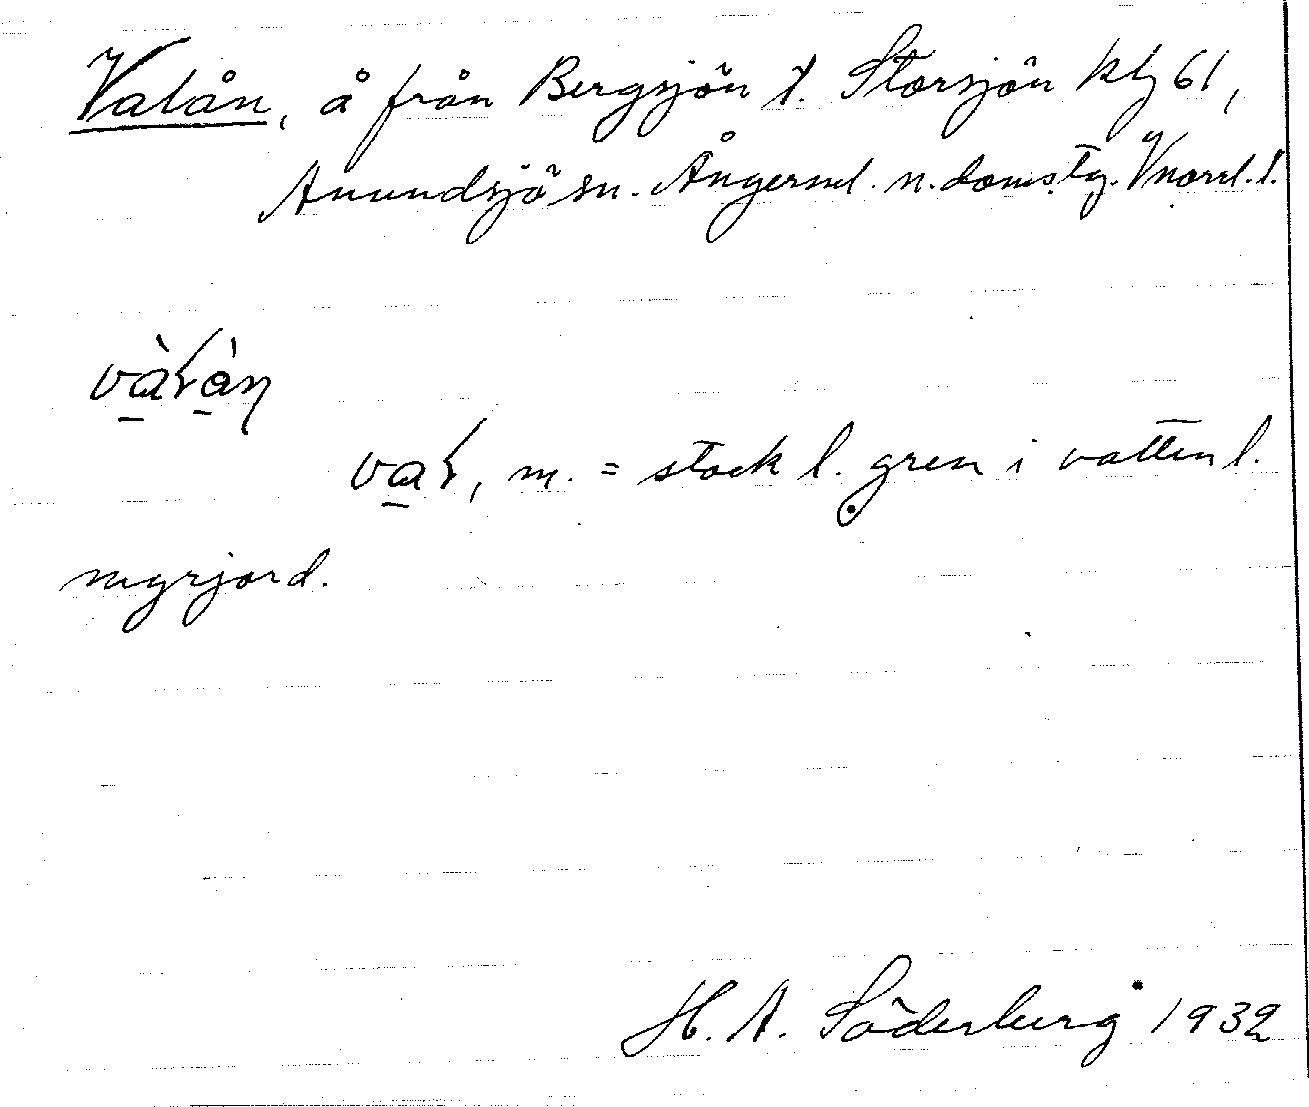 Valån, å från Bergsjön t. Storsjön kbl 61,
Anundsjö sn. Ångerml. n. doms.tg. Vnorrl. l.
vàłàn
vał, m. = stock l. gren i vatten l.
myrjord.
H. A. Söderberg 1932